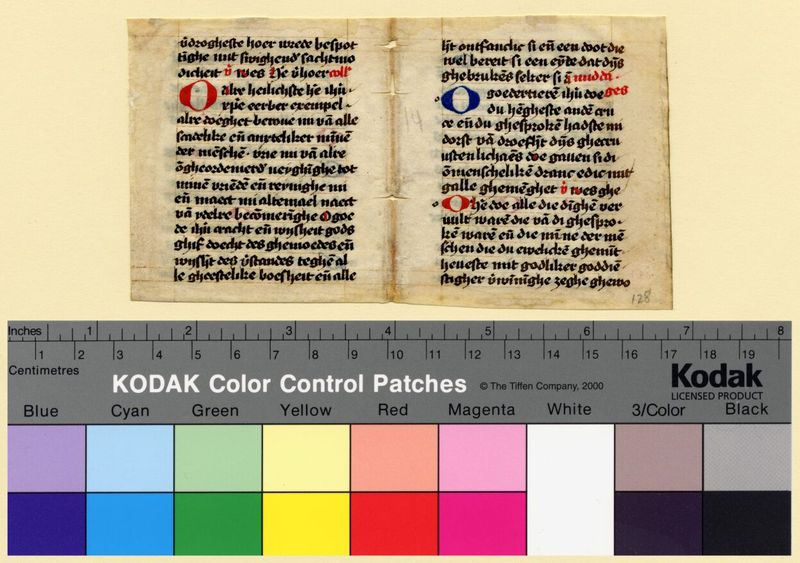 v̄drogheste hoer wrede bespot
tīghe mit swighend sachtmo
dicheit v̄ wes ꝫe v̄hoer coll'
O alre heilichste he ihū
xpie eerber exempel
alre doeghet bevrie nu vā alle
scadelike en̄ anxteliker mīnē
der mēschē. vrie nu vā alre
ōgheordenierd neyghīghe tot
mīnē vriēdē en̄ reyinghe nu
en̄ maect mi altemael naect
vā veelre becōmerīghe O goe
de ihū cracht en̄ wysheit gods
ghif doecht des ghemoedes en̄
wyshz des v̄standes teghē al
le gheestelike boesheit en̄ alle
14
lyt ontfanclic si en̄ een doot die
wel bereit si een eyde dat dijs
ghebrukēs seker si ā midda
O goedertierē ihū doe ges
du hēgheste andē cru
ce en̄ du ghesprokē hadste mi
dorst vā droefht dijs ghecru
usten lichaēs doe gauen si di
ōmenschelikē dranc edic mit
galle ghemēghet v̄ wes ghe
O he doe alle die dīghē ver
uult warē die vā di ghespro
kē warē en̄ die mīne der mē
schen die du ewelickē ghemīt
heueste mit godliker goddiē
stigher v̄winīghe zeghe ghewo
128
Inches 1 2 3 4 5 6 7 8
Centimetres 1 2 3 4 5 6 7 8 9 10 11 12 13 14 15 16 17 18 19
KODAK Color Control Patches © The Tiffen Company, 2000 Kodak
LICENSED PRODUCT
Blue Cyan Green Yellow Red Magenta White 3/Color Black